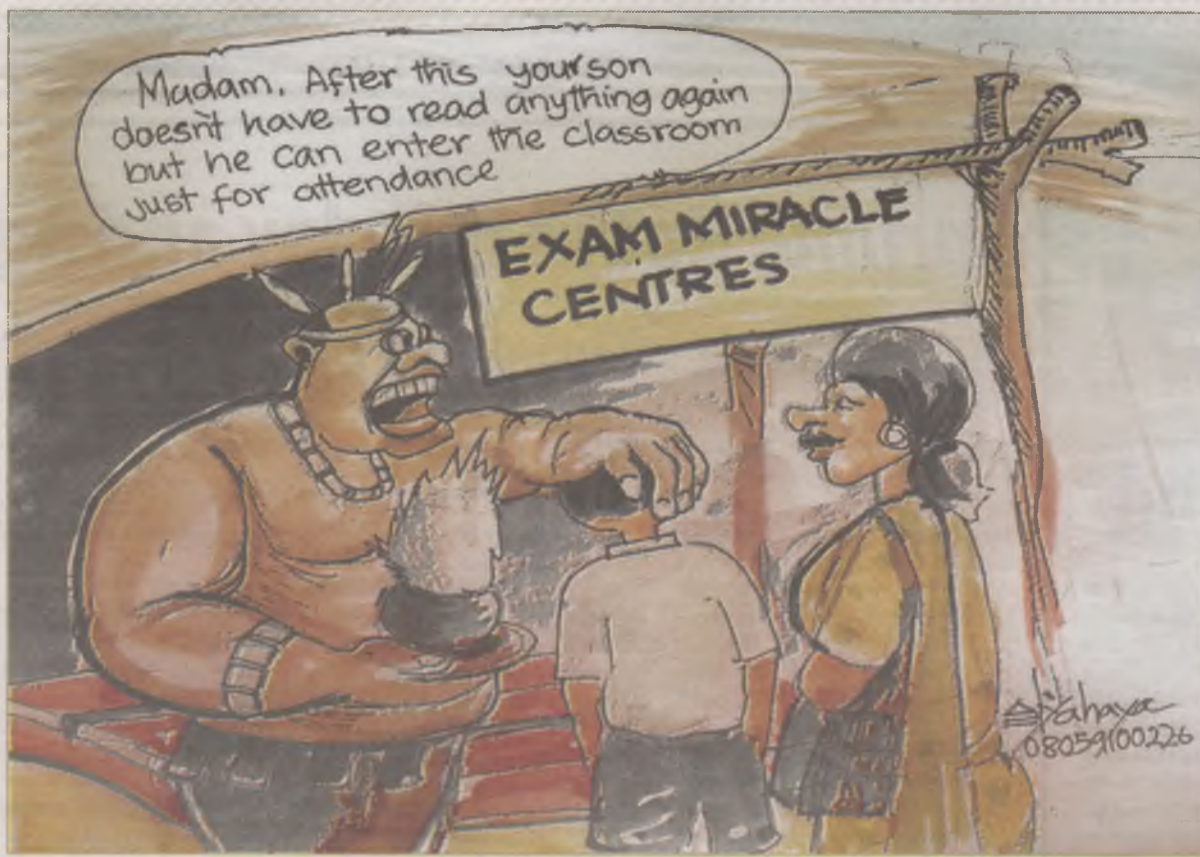 Madam. After this yourson
doesn't have to read anything again
but he can enter the classroom
just for attendance
EXAM MIRACLE
CENTRES
08059100226